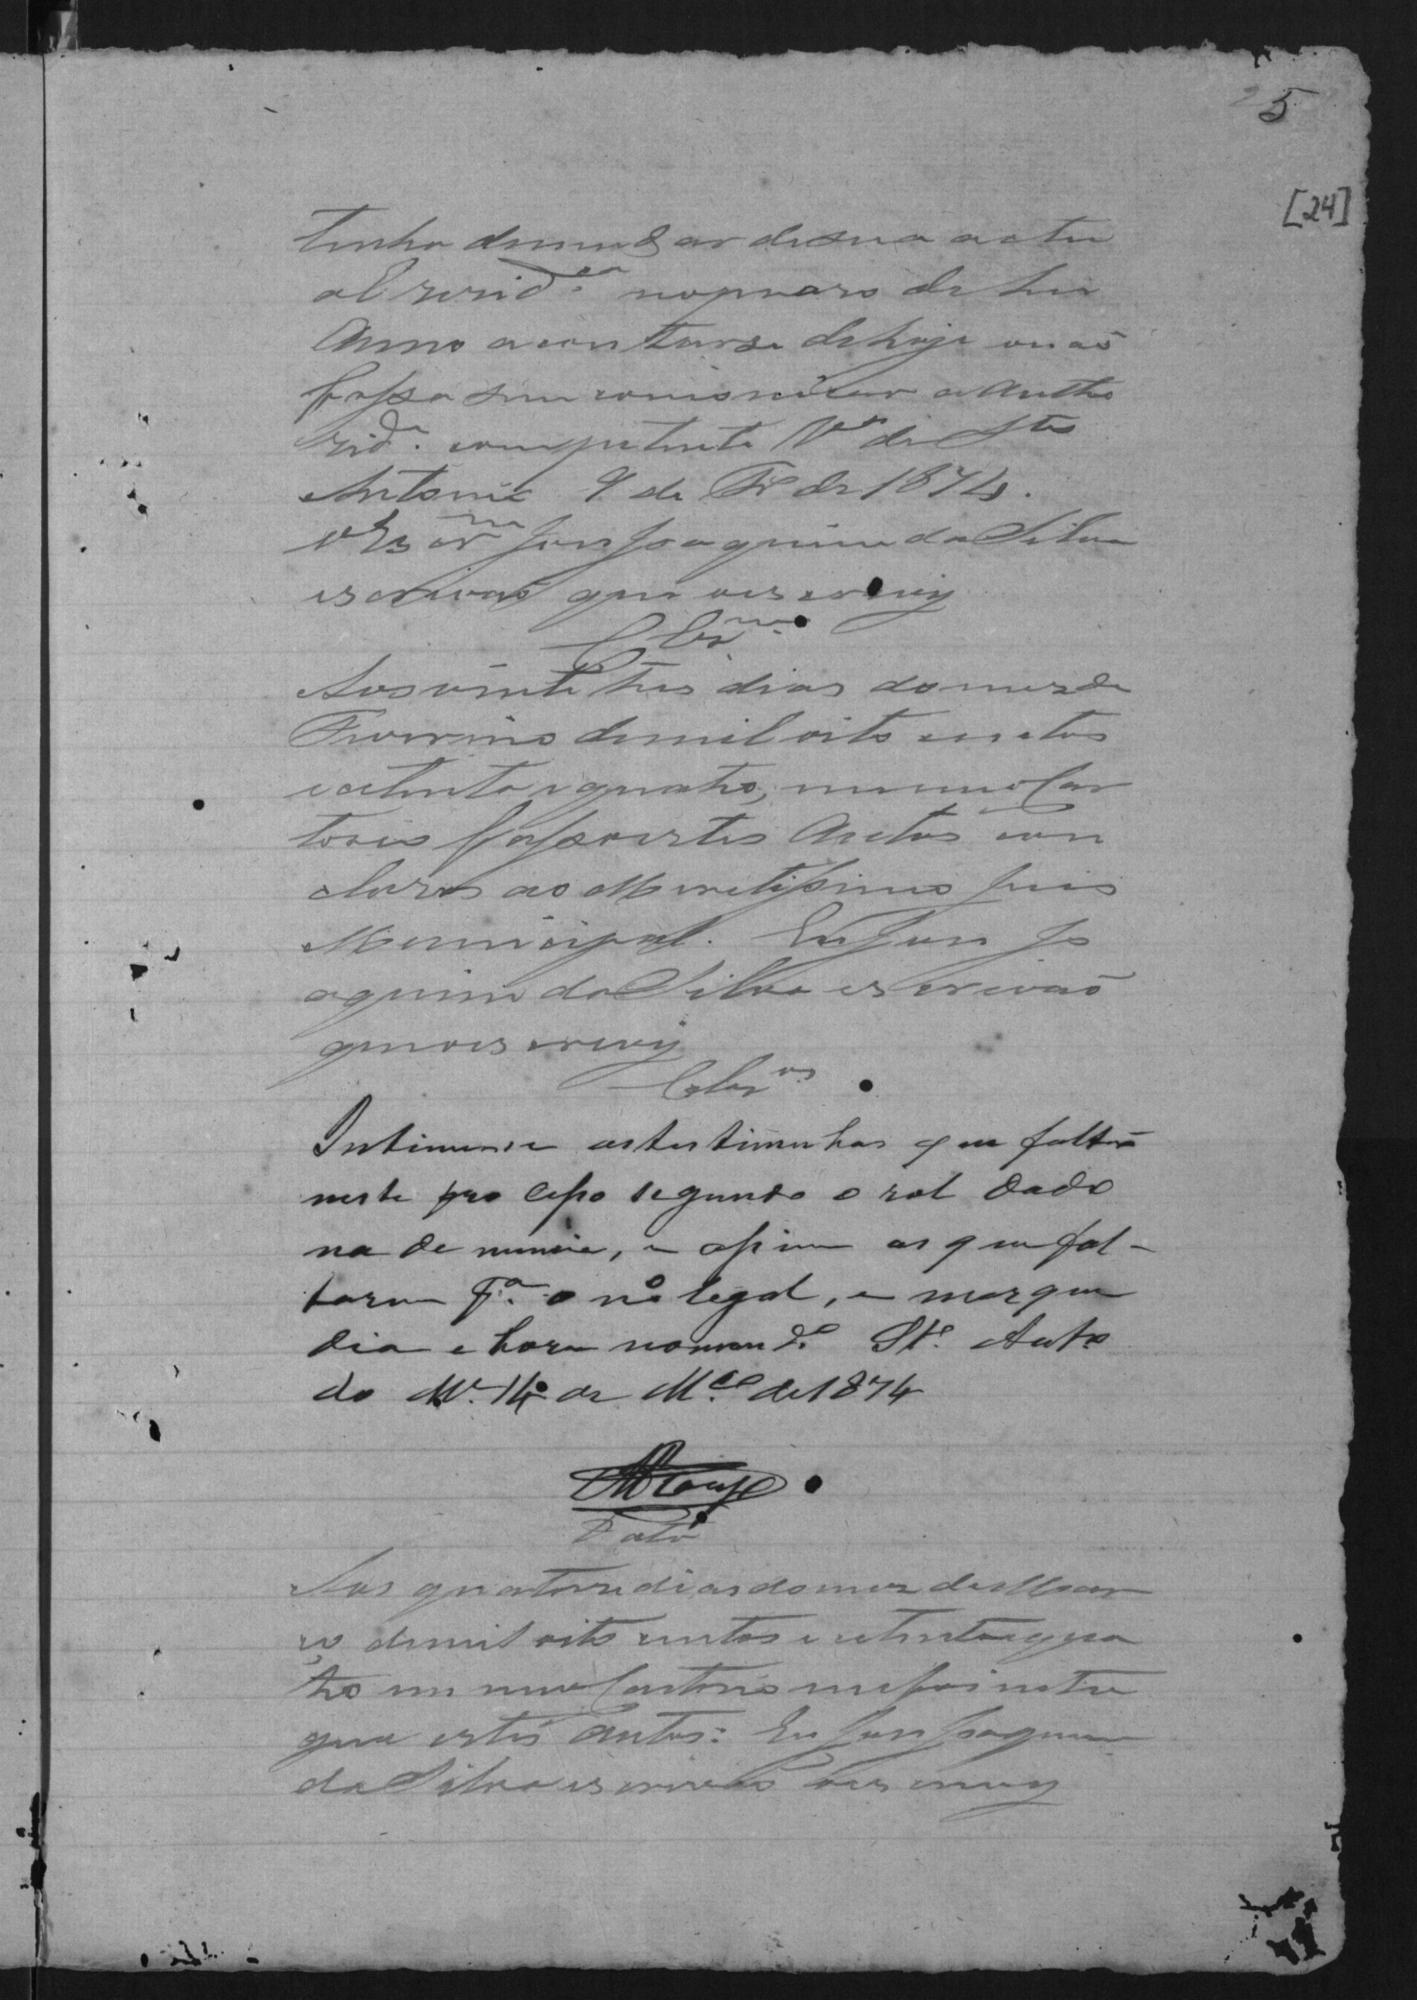 5
[24]
tenha de mudar de sua actu
al resid.ca no praso de hum
Anno a contar se de hoje ou não
fassa sem comonicar a Autho
rid.e competente V.a de Sto
Antonio 9 de Fro de 1874.
O Escr.m José Joaquim da Silva
escrivaõ que o escrevy
Clz.m
Aos vinte tres dias do mes de
Fevereiro de mil oito centos
e setenta e quatro, em meu Car
torio fasso estes Autos con
clusos ao Meretissimo Juis
Municipal. Eu José Jo
aquim da Silva escrivaõ
que o escrevy
Clz.os
Intimem se as testimunhas que faltaõ
neste processo segundo o rol dado
na denuncia, e assim as que fal-
tarem p.a o no legal, e marque
dia e hora nomean.do Sto. Anto
do M. 14 de Mço de 1874
Data
Aos quatorze dias do mes de Mar
ço de mil oito centos e setenta e qua
tro em meu Cartorio me foi entre
gue estes Autos: Eu José Joaquim
da Silva escrivaõ o escrevy